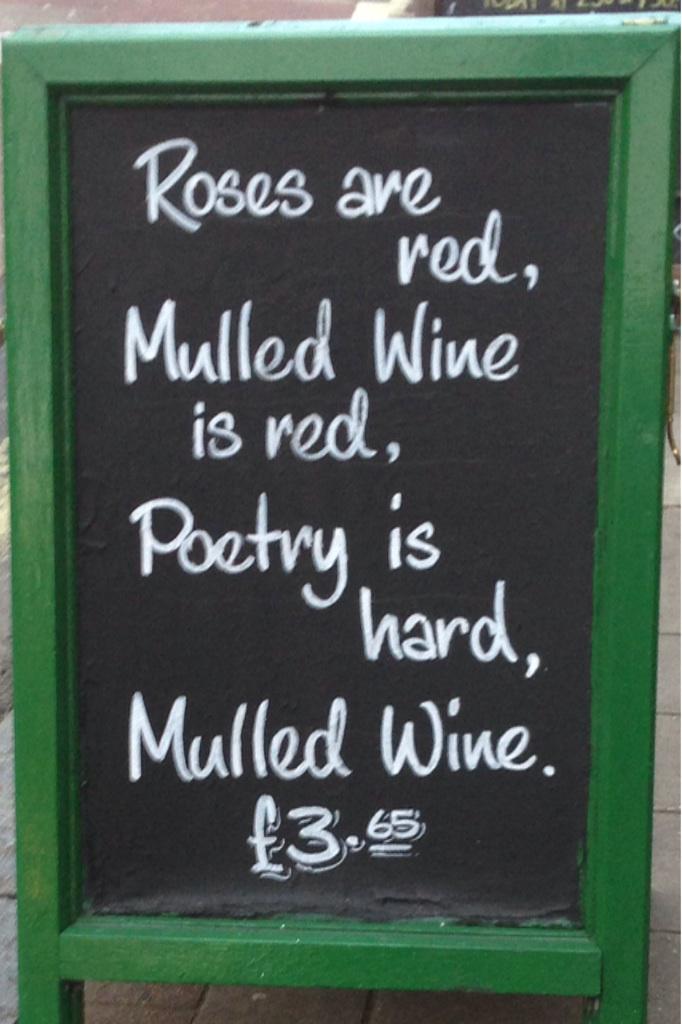 TODAY AT
Roses are
red,
Mulled Wine
is red,
Poetry is
hard,
Mulled Wine.
£3.65